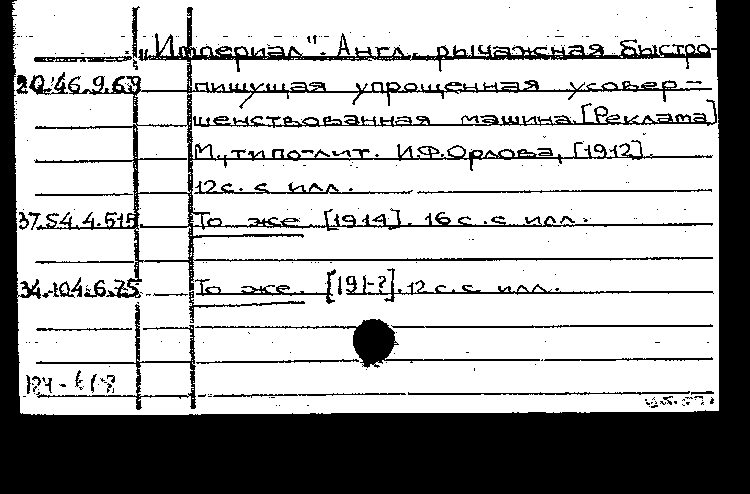 „Империал". Англ. рычажная быстро-
20.46.9.69 пишущая упрощенная усовер-
шенствованная машина. [Реклама]
М., типо-лит. И.Ф.Орлова, [1912].
12 с. с илл.
37.54.4.515 То же [1914]. 16 с. с илл.
34.104.6.75 То же. [191-?]. 12 с. с илл.